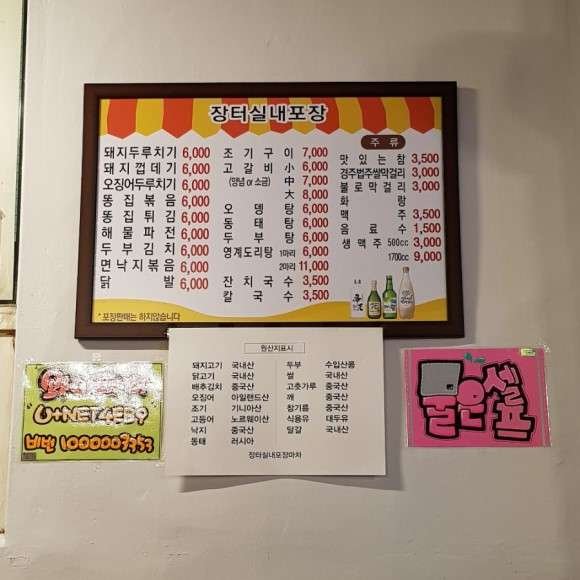 장터실내포장
돼지두루치기 6,000
돼지껍데기 6,000
오징어두루치기 6,000
똥집볶음 6,000
똥집튀김 6,000
해물파전 6,000
두부김치 6,000
면낙지볶음 6,000
닭발 6,000
* 포장판매는 하지않습니다
조기구이 7,000
고갈비 小 6,000
(양념 or 소금) 中 7,000
大 8,000
오뎅탕 6,000
동태탕 6,000
두부탕 6,000
영계도리탕 1마리 6,000
2마리 11,000
잔치국수 3,500
칼국수 3,500
주류
맛있는참 3,500
경주법주쌀막걸리 3,000
불로막걸리 3,000
화랑
맥주 3,500
음료수 1,500
생맥주 500cc 3,000
1700cc 9,000
원산지표시
돼지고기 국내산
닭고기 국내산
배추김치 중국산
오징어 아일랜드산
조기 기니아산
고등어 노르웨이산
낙지 중국산
동태 러시아
두부 수입산콩
쌀 국내산
고춧가루 중국산
깨 중국산
참기름 중국산
식용유 대두유
달걀 국내산
장터실내포장마차
비번 1000003353
물은셀프